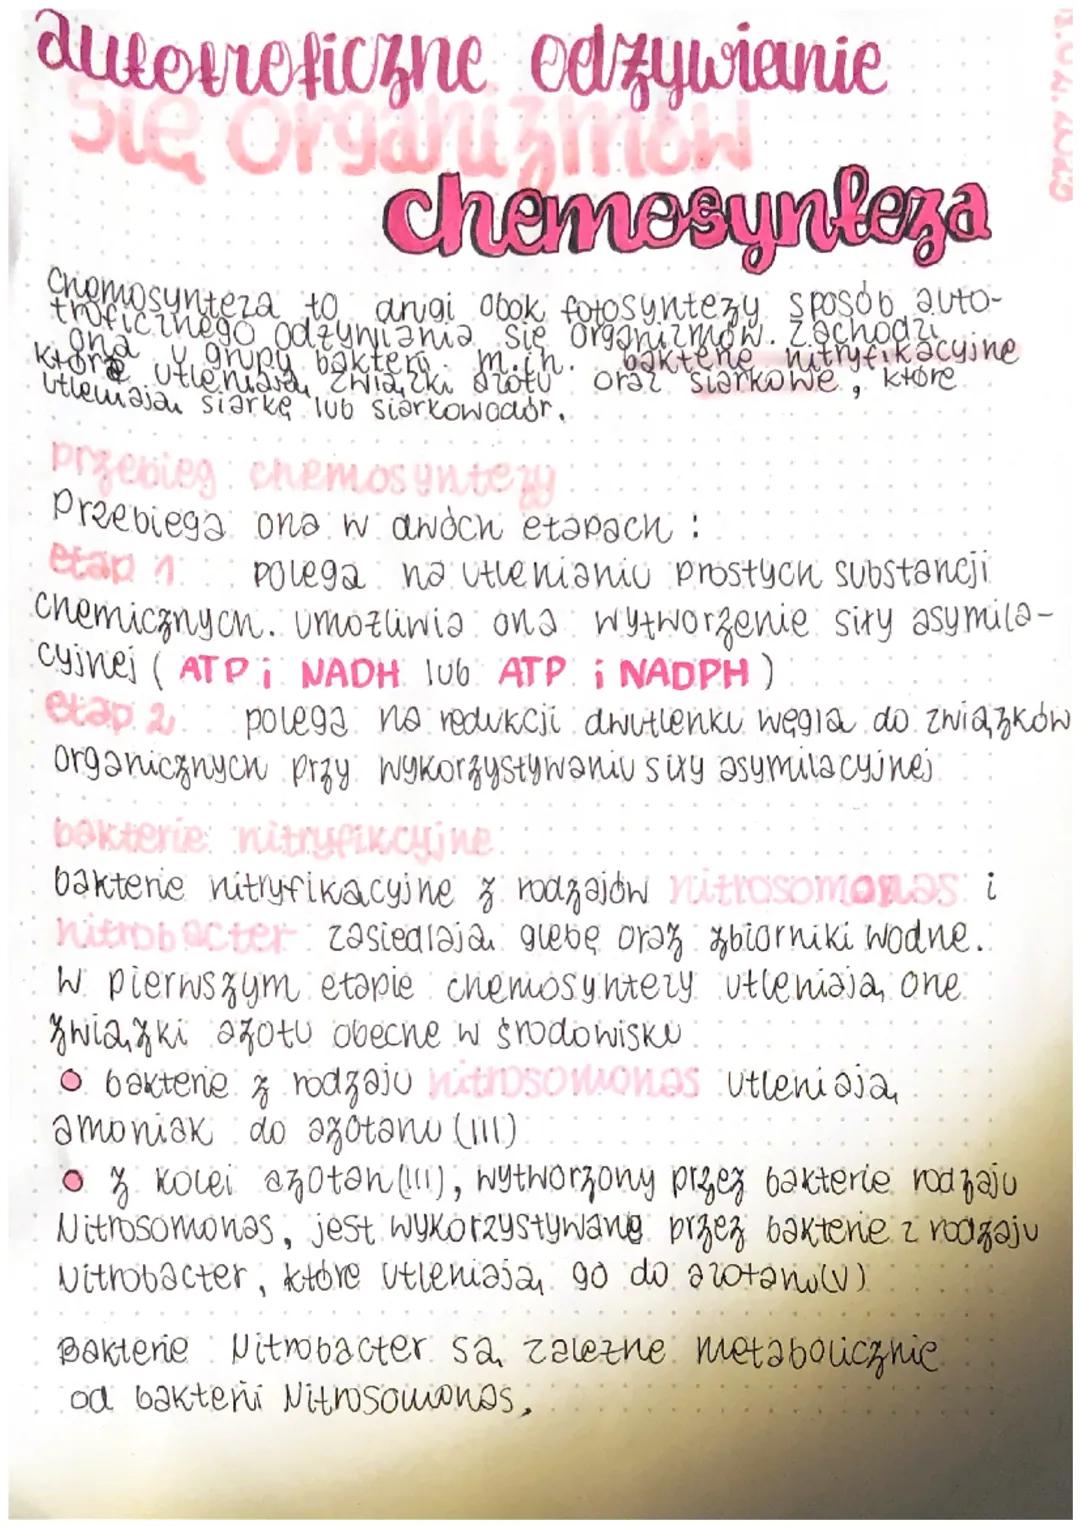 autotroficzne odżywianie
się organizmów
chemosynteza
Chemosynteza to drugi obok fotosyntezy sposób auto-
troficznego odżywiania się organizmów. Zachodzi
ona u grupy bakterii m.in. bakterie nitryfikacyjne
które utleniają związki azotu oraz siarkowe, które
utleniają siarkę lub siarkowodór.
przebieg chemosyntezy
Przebiega ona w dwóch etapach :
etap 1 polega na utlenianiu prostych substancji
chemicznych. umożliwia ona wytworzenie siły asymila-
cyjnej ( ATP i NADH lub ATP i NADPH )
etap 2 polega na redukcji dwutlenku węgla do związków
organicznych przy wykorzystywaniu siły asymilacyjnej
bakterie nitryfikcyjne
bakterie nitryfikacyjne z rodzajów nitrosomonas i
nitrobacter zasiedlają glebę oraz zbiorniki wodne.
W pierwszym etapie chemosyntezy utleniają one
związki azotu obecne w środowisku
bakterie z rodzaju nitrosomonas utleniają
amoniak do azotanu (III)
z kolei azotan (III), wytworzony przez bakterie rodzaju
Nitrosomonas, jest wykorzystywany przez bakterie z rodzaju
Nitrobacter, które utleniają go do azotanu(V)
Bakterie Nitrobacter są zależne metabolicznie
od bakterii Nitrosomonas.